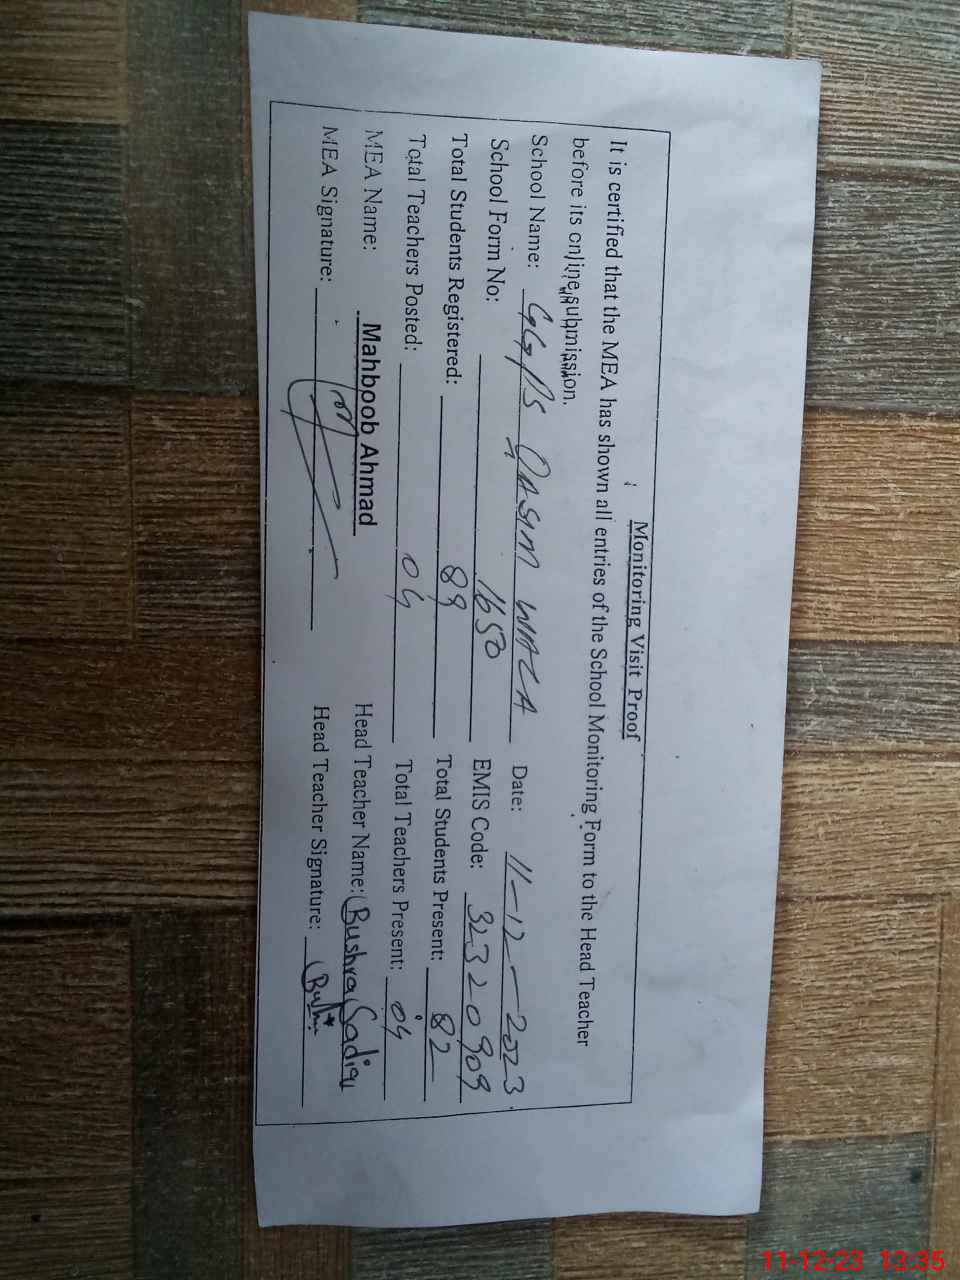 Monitoring Visit Proof
It is certified that the MEA has shown all entries of the School Monitoring Form to the Head Teacher
before its online submission.
School Name: GGPS QASIM WALA Date: 11-12-2023
School Form No: 1650 EMIS Code: 32320909
Total Students Registered: 89 Total Students Present: 82
Total Teachers Posted: 04 Total Teachers Present: 04
MEA Name: Mahboob Ahmad Head Teacher Name: Bushra Sadiq
MEA Signature: Head Teacher Signature:
11-12-23 13:35